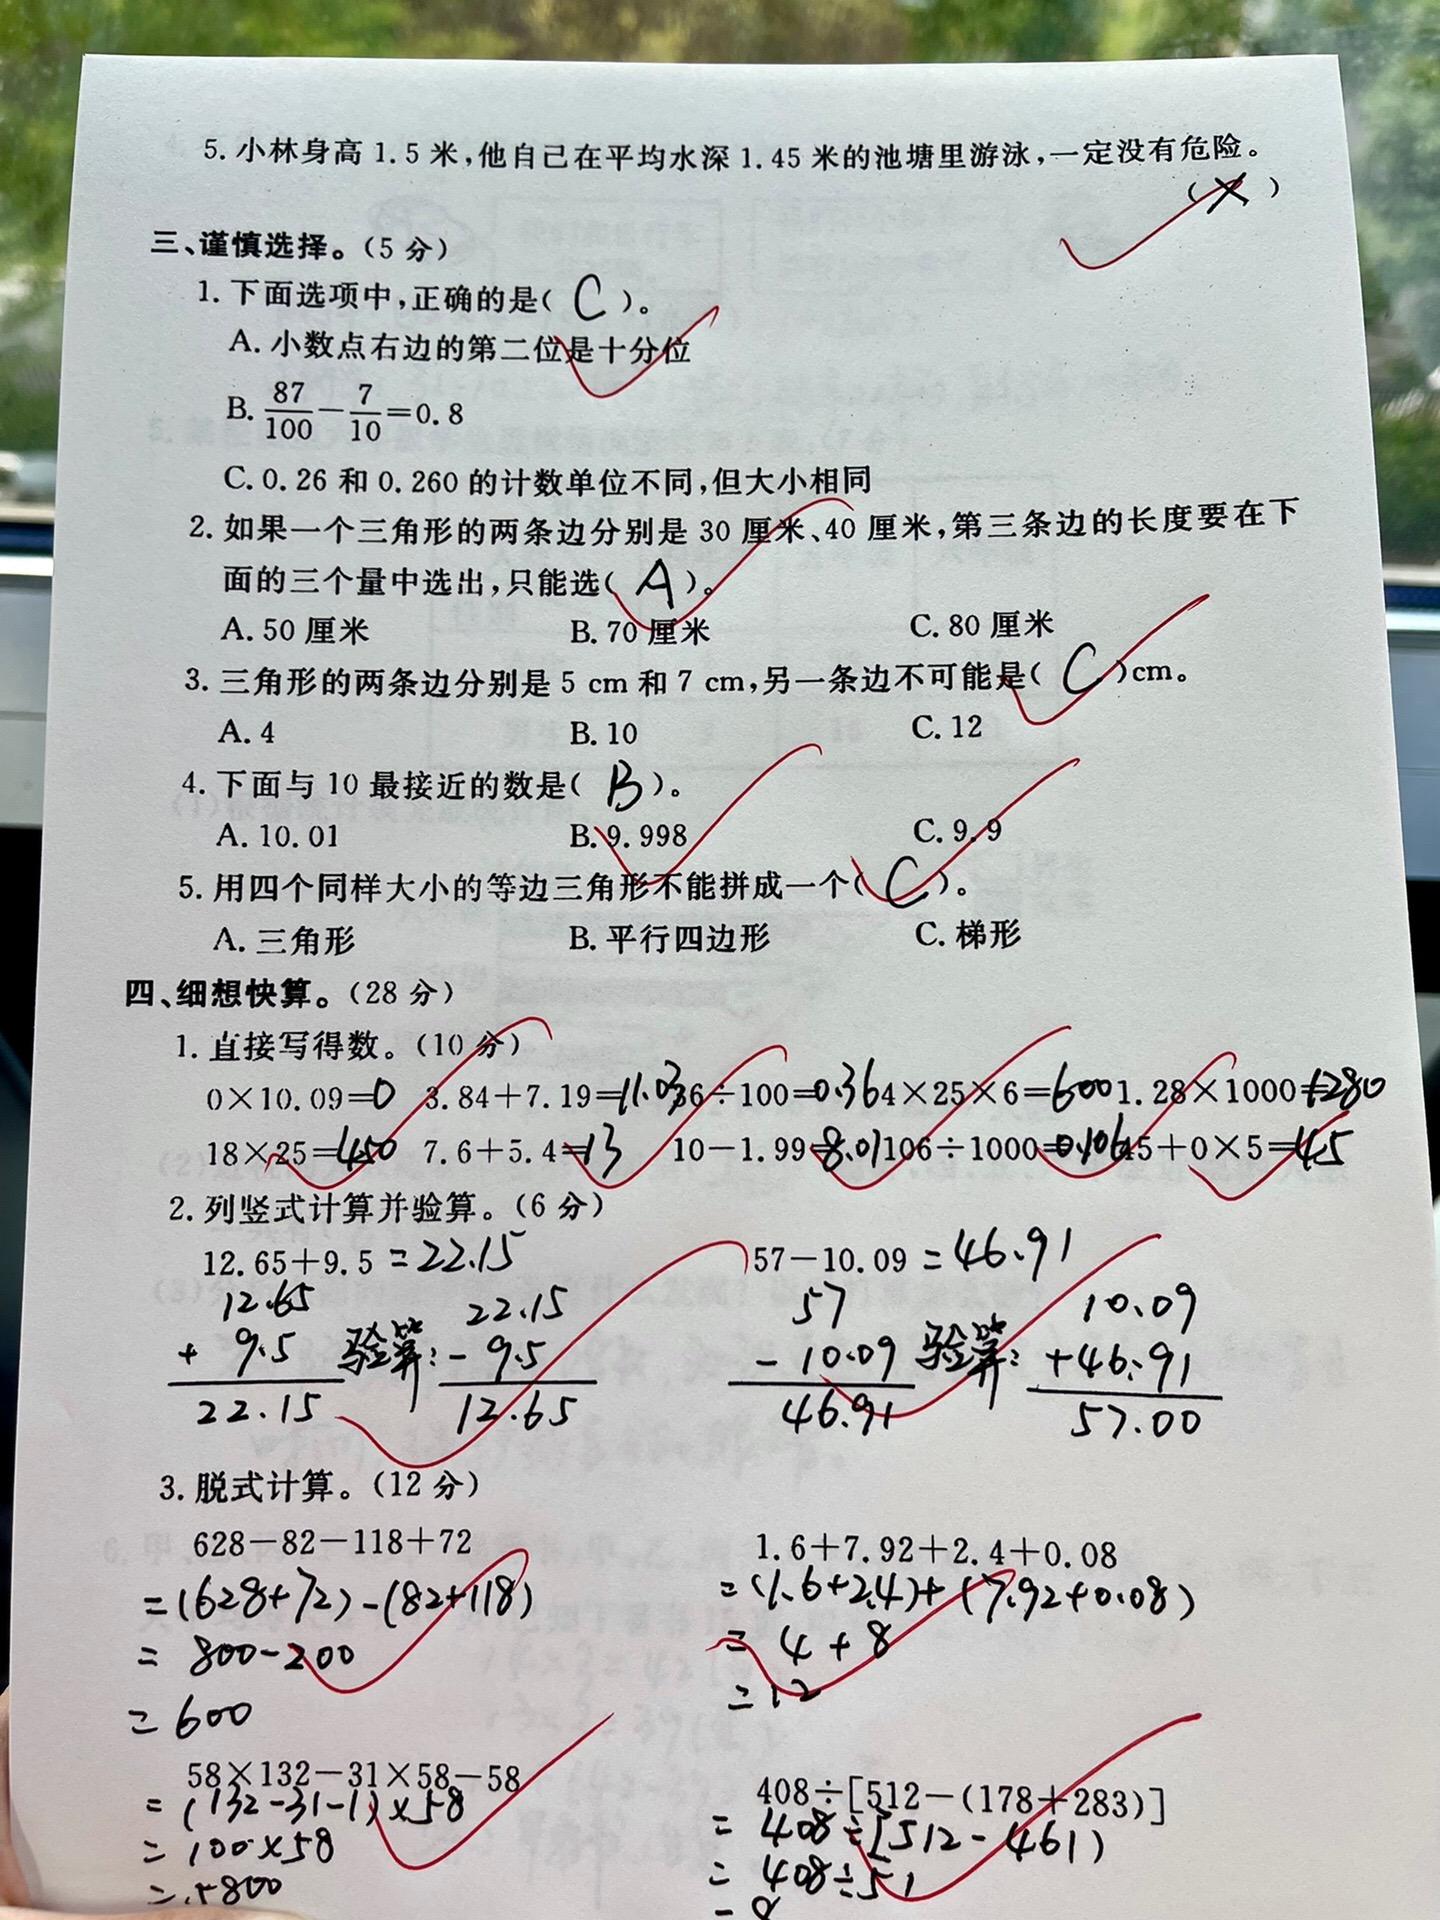 5. 小林身高 1.5 米,他自己在平均水深 1.45 米的池塘里游泳,一定没有危险。
(×)
三、谨慎选择。(5 分)
1. 下面选项中,正确的是( C )。
A. 小数点右边的第二位是十分位
B. 87/100 − 7/10 = 0.8
C. 0.26 和 0.260 的计数单位不同,但大小相同
2. 如果一个三角形的两条边分别是 30 厘米、40 厘米,第三条边的长度要在下
面的三个量中选出,只能选( A )。
A. 50 厘米 B. 70 厘米 C. 80 厘米
3. 三角形的两条边分别是 5 cm 和 7 cm,另一条边不可能是( C )cm。
A. 4 B. 10 C. 12
4. 下面与 10 最接近的数是( B )。
A. 10.01 B. 9.998 C. 9.9
5. 用四个同样大小的等边三角形不能拼成一个( C )。
A. 三角形 B. 平行四边形 C. 梯形
四、细想快算。(28 分)
1. 直接写得数。(10 分)
0×10.09=0 3.84+7.19=11.03 36÷100=0.36 4×25×6=600 1.28×1000=1280
18×25=450 7.6+5.4=13 10−1.99=8.01 106÷1000=0.106 45+0×5=45
2. 列竖式计算并验算。(6 分)
12.65+9.5=22.15 57−10.09=46.91
12.65 22.15 57 10.09
+ 9.5 验算: − 9.5 − 10.09 验算: +46.91
22.15 12.65 46.91 57.00
3. 脱式计算。(12 分)
628−82−118+72 1.6+7.92+2.4+0.08
=(628+72)−(82+118) =(1.6+2.4)+(7.92+0.08)
= 800−200 = 4+8
= 600 =12
58×132−31×58−58 408÷[512−(178+283)]
=(132−31−1)×58 = 408÷[512−461)
= 100×58 = 408÷51
= 5800 = 8